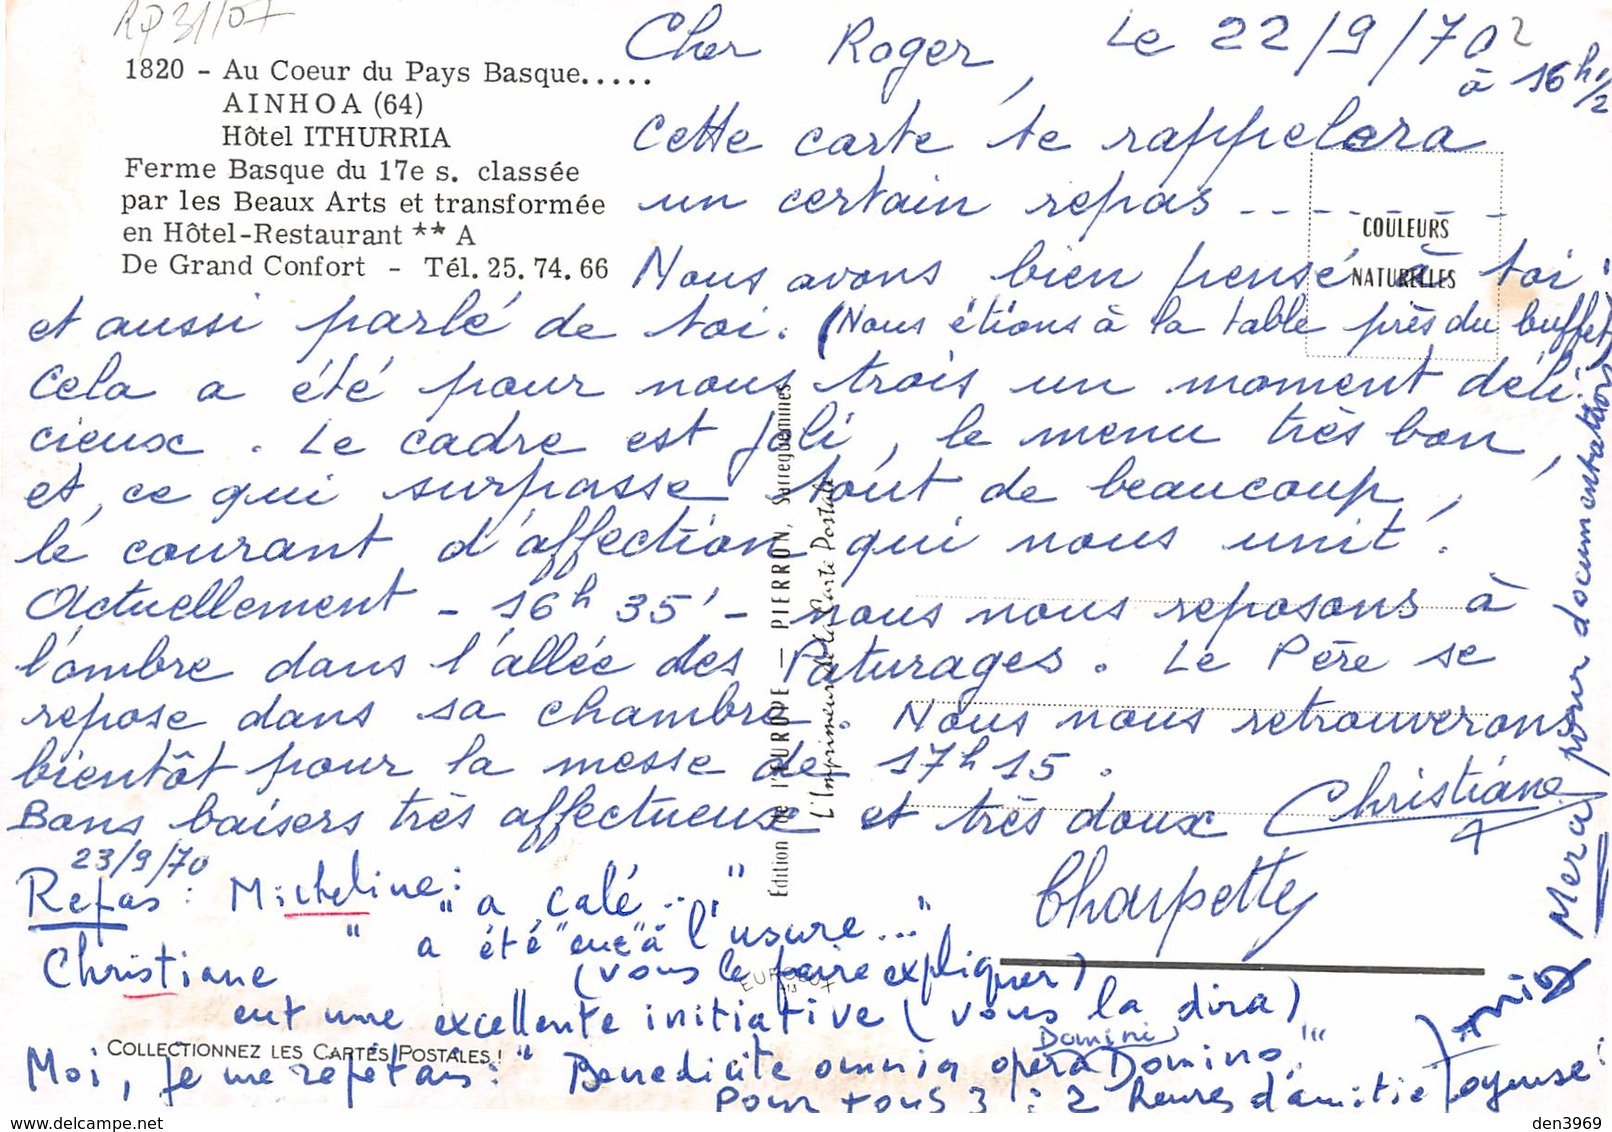 RP 31/07
1820 - Au Coeur du Pays Basque.....
AINHOA (64)
Hôtel ITHURRIA
Ferme Basque du 17e s. classée
par les Beaux Arts et transformée
en Hôtel-Restaurant ** A
De Grand Confort - Tél. 25. 74. 66
COULEURS
NATURELLES
Le 22/9/70
à 16h 1/2
Cher Roger,
Cette carte te rappelera
un certain repas --------
Nous avons bien pensé à toi
et aussi parlé de toi. (Nous étions à la table près du buffet)
Cela a été pour nous trois un moment déli-
cieux. Le cadre est joli, le menu très bon,
et, ce qui surpasse tout de beaucoup,
le courant d'affection qui nous unit.
Actuellement - 16h 35' - nous nous reposons à
l'ombre dans l'allée des Paturages. Le Père se
repose dans sa chambre. Nous nous retrouverons
bientôt pour la messe de 17h15.
Bons baisers très affectueux et très doux Christiane
23/9/70
Repas : Micheline : "a calé..."
" a été "eue" à l'usure..."
(vous le faire expliquer)
Christiane
eut une excellente initiative (vous la dira)
Moi, je me répétais : "Benedicite omnia opera Domino"
Domini
Pour tous 3 : 2 heures d'amitié joyeuse !
Merci pour documentation
Edition de l'EUROPE — PIERRON, Sarreguemines
L'Imprimeur de la Carte Postale
COLLECTIONNEZ LES CARTES POSTALES !
den3969